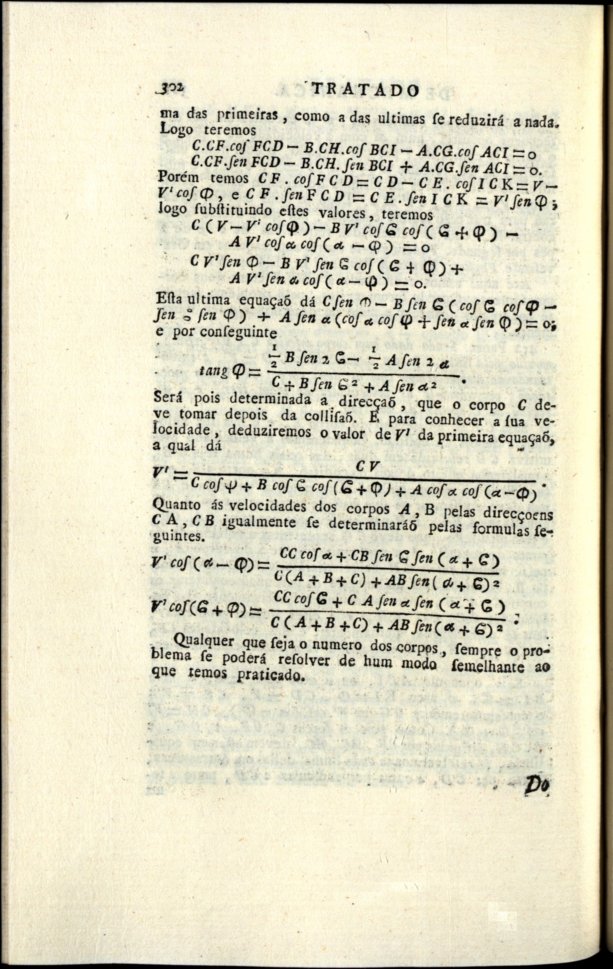 302 TRATADO
ma das primeiras, como a das ultimas ſe reduzirá a nada.
Logo teremos
C.CF.coſ FCD — B.CH.coſ BCI — A.CG.coſ ACI = 0
C.CF.ſen FCD — B.CH.ſen BCI + A.CG.ſen ACI = 0.
Porém temos CF. coſ F C D = C D — C E. coſ I C K = V —
V' coſ Φ, e C F. ſen F C D = C E. ſen I C K = V' ſen Φ;
logo ſubſtituindo eſtes valores, teremos
C ( V — V' coſ Φ ) — B V' coſ Ϭ coſ ( Ϭ + Φ ) —
A V' coſ α coſ ( α — Φ ) = 0
C V' ſen Φ — B V' ſen Ϭ coſ ( Ϭ + Φ ) +
A V' ſen α coſ ( α — Φ ) = 0.
Eſta ultima equaçaõ dá C ſen Φ — B ſen Ϭ ( coſ Ϭ coſ Φ —
ſen Ϭ ſen Φ ) + A ſen α ( coſ α coſ Φ + ſen α ſen Φ ) = 0;
e por conſeguinte
tang Φ = (½ B ſen 2 Ϭ — ½ A ſen 2 α) / (C + B ſen Ϭ ² + A ſen α ²) .
Será pois determinada a direcçaõ, que o corpo C de-
ve tomar depois da colliſaõ. E para conhecer a ſua ve-
locidade, deduziremos o valor de V' da primeira equaçaõ,
a qual dá
V' = (C V) / (C coſ ψ + B coſ Ϭ coſ ( Ϭ + Φ ) + A coſ α coſ ( α — Φ )) .
Quanto ás velocidades dos corpos A, B pelas direcçoens
C A, C B igualmente ſe determinaráõ pelas formulas ſe-
guintes.
V' coſ ( α — Φ ) = (CC coſ α + CB ſen Ϭ ſen ( α + Ϭ )) / (C ( A + B + C ) + AB ſen ( α + Ϭ ) ²)
V' coſ ( Ϭ + Φ ) = (CC coſ Ϭ + C A ſen α ſen ( α + Ϭ )) / (C ( A + B + C ) + AB ſen ( α + Ϭ ) ²) .
Qualquer que ſeja o numero dos corpos, ſempre o pro-
blema ſe poderá reſolver de hum modo ſemelhante ao
que temos praticado.
Do